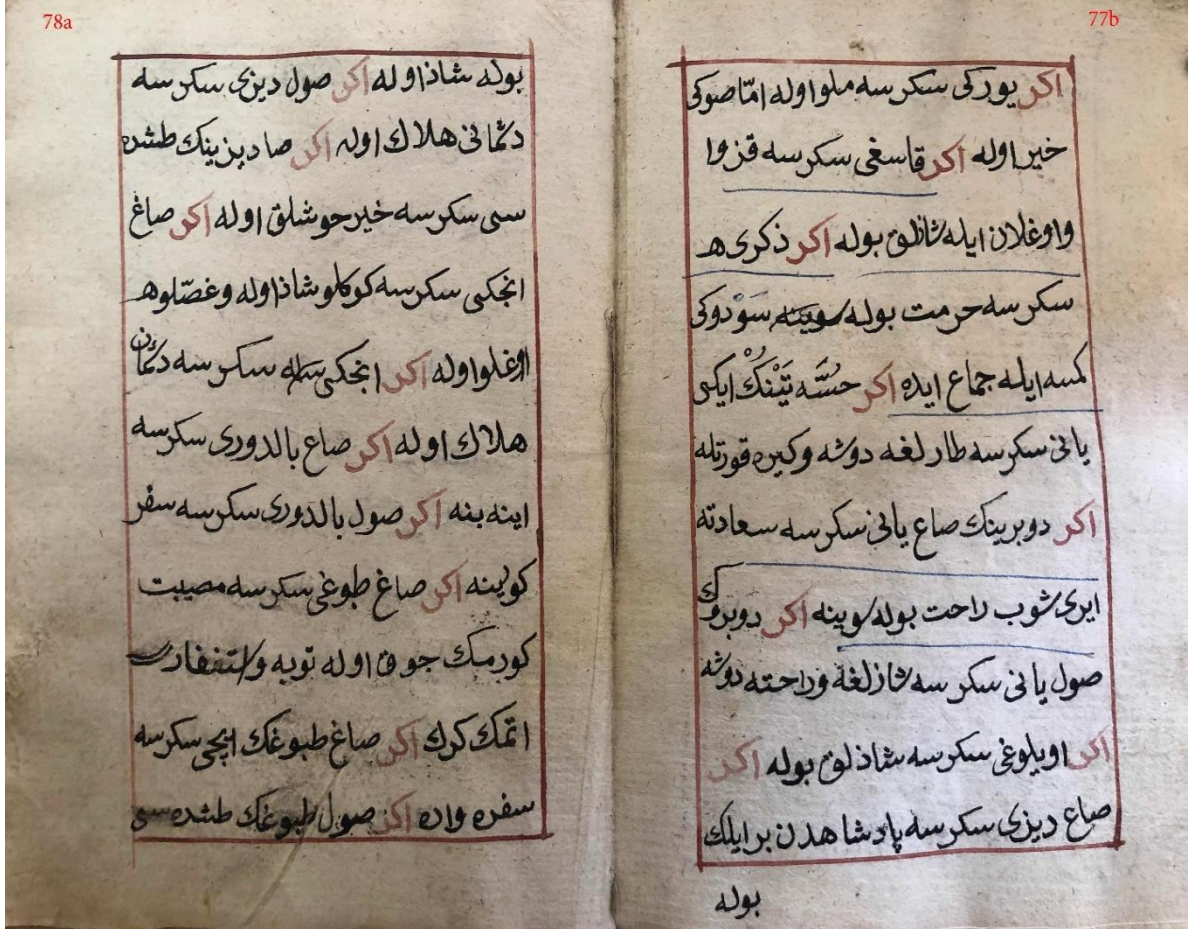 77b
اكر يوركى سكرسه ملو اوله امّا صوكى
خير اوله اكر قاسغى سكرسه قزوا
واوغلان ايله شاذلق بوله اكر ذكرى
سكرسه حرمت بوله سوينه سَوْدوكى
كمسه ايله جماع ايده اكر ايكى
يانى سكرسه طارلغه دوشه وكيره قورتله
اكر دوبرينك صاع يانى سكرسه سعادته
ايرى شوب راحت بوله سوينه اكر دوبرونك
صول يانى سكرسه شازلغه وراحته دوشه
اكر اويلوغى سكرسه شاذلق بوله اكر
صاع ديزى سكرسه پادشاهدن برايلك
بوله
78a
بوله شاذ اوله اكر صول ديزى سكرسه
دشمانى هلاك اوله اكر صا ديزينك طشده
سى سكرسه خير حوشلق اوله اكر صاغ
انجكى سكرسه كوكلو شاذ اوله وغصّلو
اوغلو اوله اكر انجكى سكرسه دشمان
هلاك اوله اكر صاع بالدورى سكرسه
اينه بنه اكر صول بالدورى سكرسه سفر
كوينه اكر صاغ طبوغى سكرسه مصيبت
كورمك جوق اوله توبه واستغفار
اتمك كرك اكر صاغ طبوغك ايچى سكرسه
سفره واره اكر صول طبوغك طشده سى